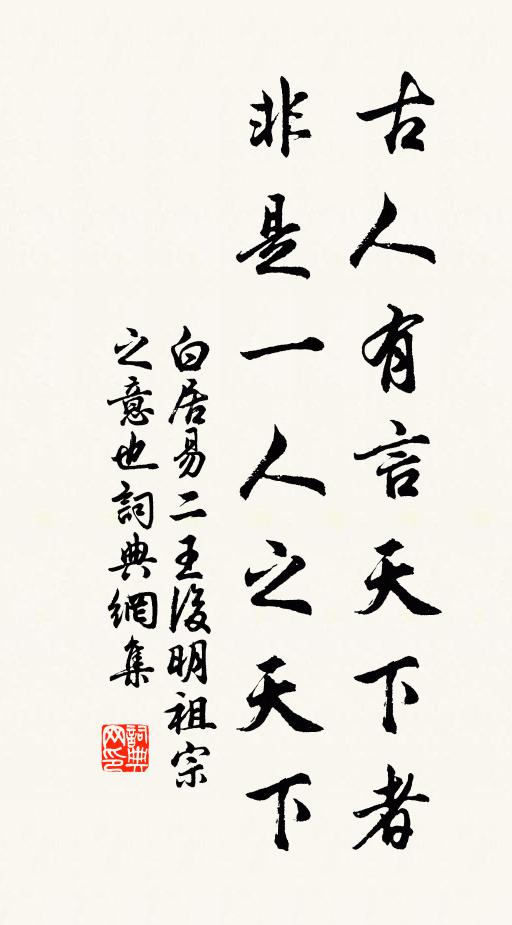 古人有言天下者
非是一人之天下
白居易二王後明祖宗
之意也詞典網集
詞典网印